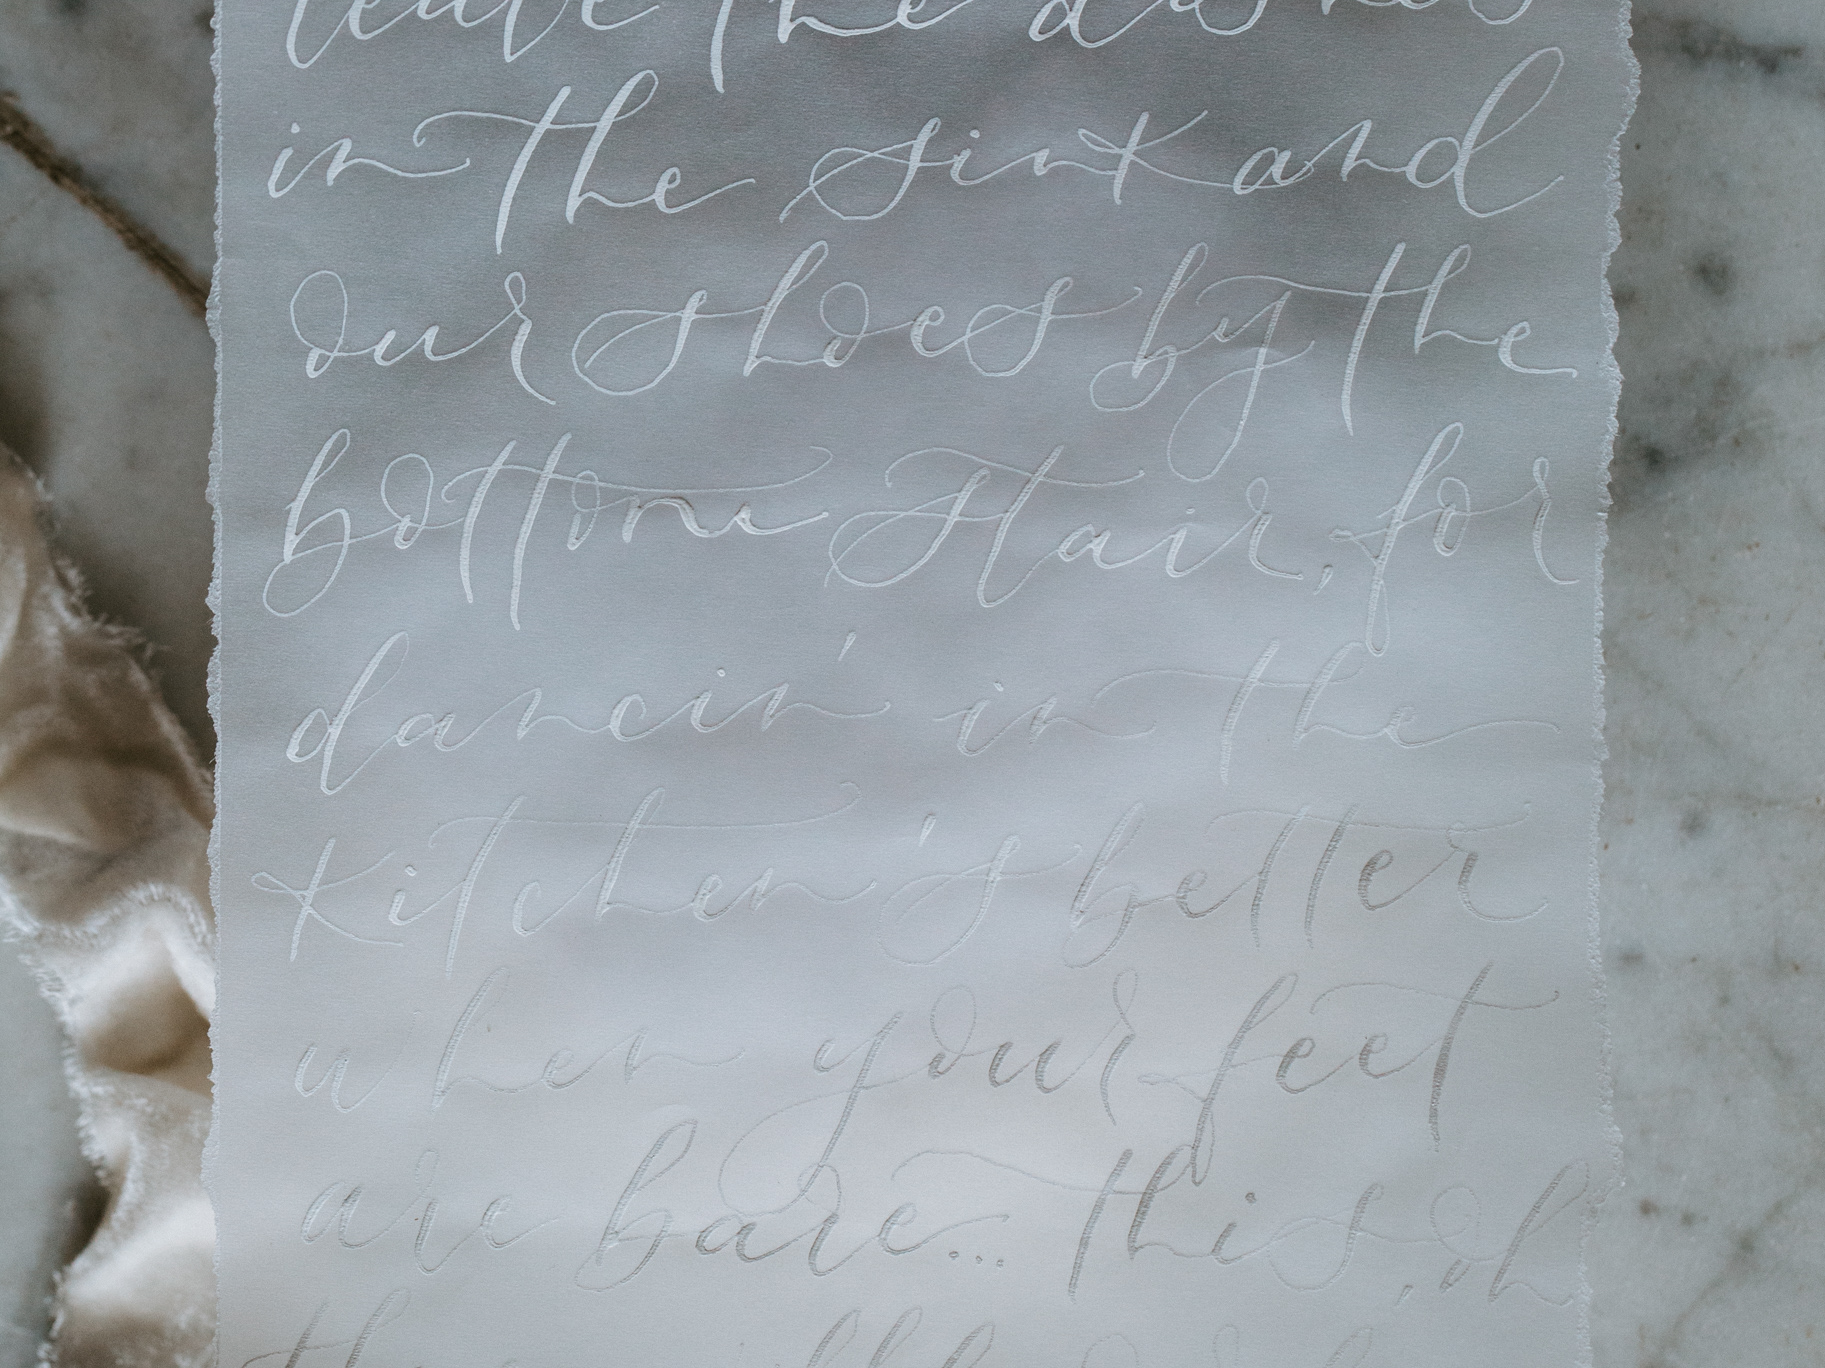 leave the dishes
in the sink and
our shoes by the
bottom stair, for
dancin' in the
kitchen's better
when your feet
are bare... this, oh